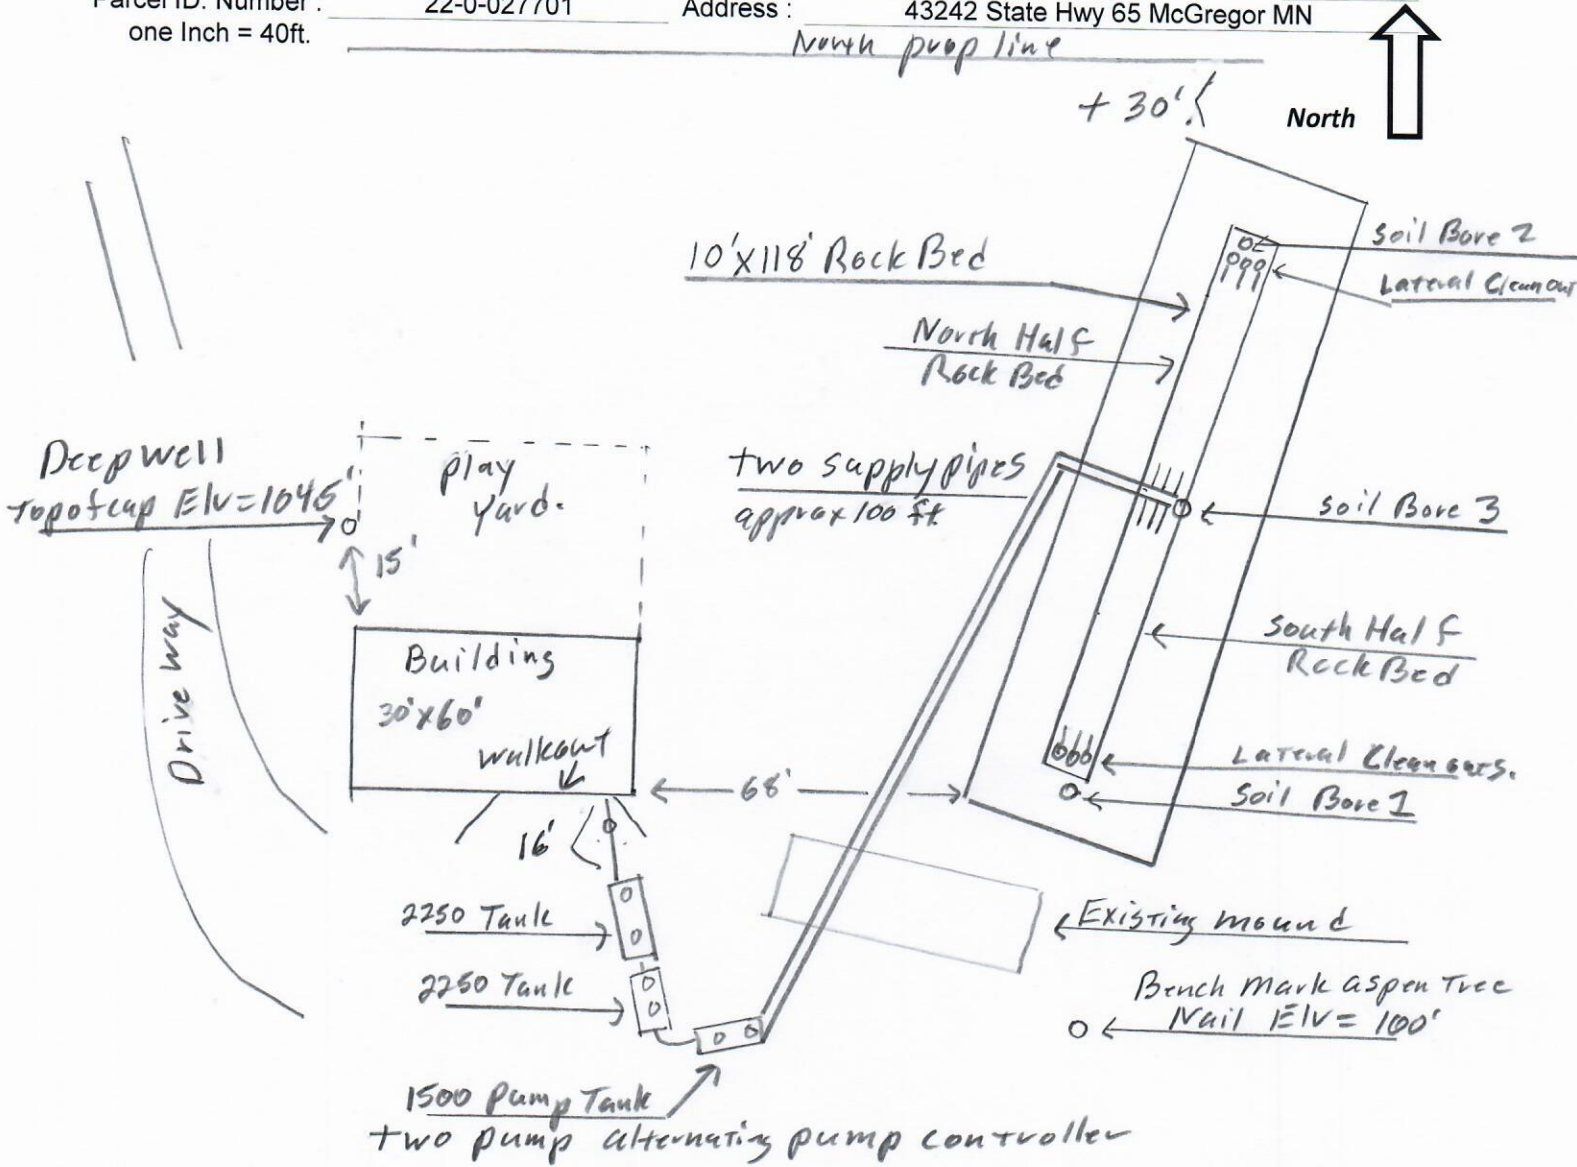 Parcel ID. Number : 22-0-027701 Address : 43242 State Hwy 65 McGregor MN
one Inch = 40ft.
North prop line
+ 30'
North
Soil Bore 2
10'X118' Rock Bed
Lateral Clean out
North Half
Rock Bed
Deepwell
top of cap Elv=1045'
play
yard.
two supply pipes
approx 100 ft
Soil Bore 3
15'
Drive way
Building
30'x60'
walkout
South Half
Rock Bed
68'
Lateral Clean outs.
Soil Bore 1
16'
2250 Tank
Existing mound
2250 Tank
Bench Mark aspen Tree
Nail Elv= 100'
1500 Pump Tank
two pump alternating pump controller